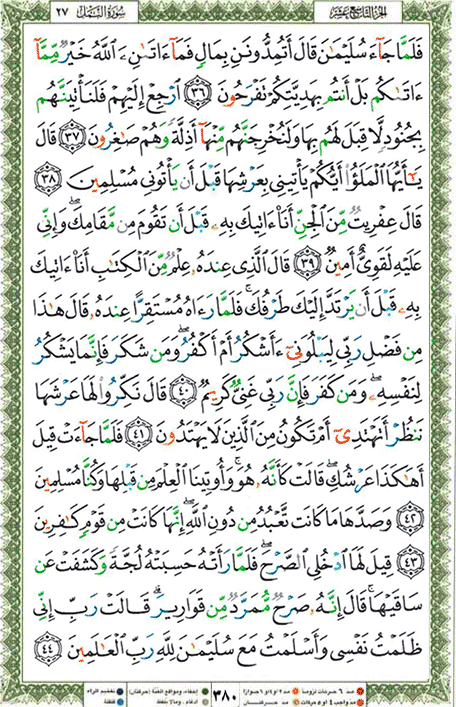 الجزء التاسع عشر سورة النمل ٢٧
فَلَمَّا جَآءَ سُلَيْمَٰنَ قَالَ أَتُمِدُّونَنِ بِمَالٍ فَمَآ ءَاتَىٰنِۦَ ٱللَّهُ خَيْرٌ مِّمَّآ
ءَاتَىٰكُم بَلْ أَنتُم بِهَدِيَّتِكُمْ تَفْرَحُونَ ٣٦ ٱرْجِعْ إِلَيْهِمْ فَلَنَأْتِيَنَّهُم
بِجُنُودٍ لَّا قِبَلَ لَهُم بِهَا وَلَنُخْرِجَنَّهُم مِّنْهَآ أَذِلَّةً وَهُمْ صَٰغِرُونَ ٣٧ قَالَ
يَٰٓأَيُّهَا ٱلْمَلَؤُا۟ أَيُّكُمْ يَأْتِينِى بِعَرْشِهَا قَبْلَ أَن يَأْتُونِى مُسْلِمِينَ ٣٨
قَالَ عِفْرِيتٌ مِّنَ ٱلْجِنِّ أَنَا۠ ءَاتِيكَ بِهِۦ قَبْلَ أَن تَقُومَ مِن مَّقَامِكَ ۖ وَإِنِّى
عَلَيْهِ لَقَوِىٌّ أَمِينٌ ٣٩ قَالَ ٱلَّذِى عِندَهُۥ عِلْمٌ مِّنَ ٱلْكِتَٰبِ أَنَا۠ ءَاتِيكَ
بِهِۦ قَبْلَ أَن يَرْتَدَّ إِلَيْكَ طَرْفُكَ ۚ فَلَمَّا رَءَاهُ مُسْتَقِرًّا عِندَهُۥ قَالَ هَٰذَا
مِن فَضْلِ رَبِّى لِيَبْلُوَنِىٓ ءَأَشْكُرُ أَمْ أَكْفُرُ ۖ وَمَن شَكَرَ فَإِنَّمَا يَشْكُرُ
لِنَفْسِهِۦ ۖ وَمَن كَفَرَ فَإِنَّ رَبِّى غَنِىٌّ كَرِيمٌ ٤٠ قَالَ نَكِّرُوا۟ لَهَا عَرْشَهَا
نَنظُرْ أَتَهْتَدِىٓ أَمْ تَكُونُ مِنَ ٱلَّذِينَ لَا يَهْتَدُونَ ٤١ فَلَمَّا جَآءَتْ قِيلَ
أَهَٰكَذَا عَرْشُكِ ۖ قَالَتْ كَأَنَّهُۥ هُوَ ۚ وَأُوتِينَا ٱلْعِلْمَ مِن قَبْلِهَا وَكُنَّا مُسْلِمِينَ
٤٢ وَصَدَّهَا مَا كَانَت تَّعْبُدُ مِن دُونِ ٱللَّهِ ۖ إِنَّهَا كَانَتْ مِن قَوْمٍ كَٰفِرِينَ
٤٣ قِيلَ لَهَا ٱدْخُلِى ٱلصَّرْحَ ۖ فَلَمَّا رَأَتْهُ حَسِبَتْهُ لُجَّةً وَكَشَفَتْ عَن
سَاقَيْهَا ۚ قَالَ إِنَّهُۥ صَرْحٌ مُّمَرَّدٌ مِّن قَوَارِيرَ ۗ قَالَتْ رَبِّ إِنِّى
ظَلَمْتُ نَفْسِى وَأَسْلَمْتُ مَعَ سُلَيْمَٰنَ لِلَّهِ رَبِّ ٱلْعَٰلَمِينَ ٤٤
٣٨٠